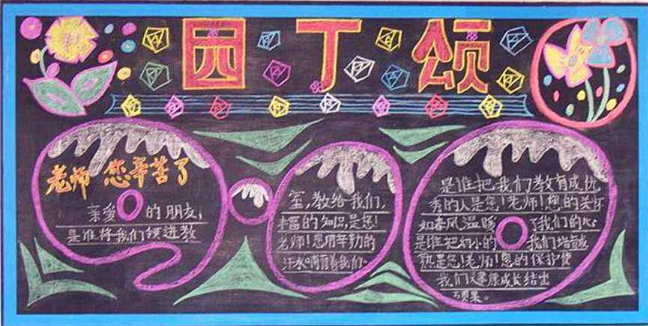 园丁颂
老师 您辛苦了
亲爱的朋友,
是谁将我们领进教
室,教给我们,
丰富的知识,是您!
老师!您用辛勤的
汗水哺育着我们。
是谁把我们教育成优
秀的人是您!老师!您的关怀
如春风温暖了我们的心
是谁把幼小的我们培育成
熟是您!老师!您的保护使
我们健康成长结出
硕果。